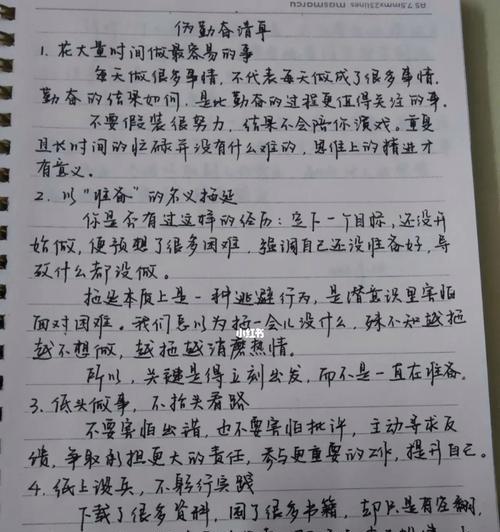 A5 7.5mmx25lines maruman
伪勤奋清单
1. 花大量时间做最容易的事
每天做很多事情，不代表每天做成了很多事情，
勤奋的结果如何，是比勤奋的过程更值得关注的事。
不要假装很努力，结果不会陪你演戏。重复
且长时间的忙碌并没有什么难的，思维上的精进才
有意义。
2. 以“准备”的名义拖延
你是否有过这样的经历：定下一个目标，还没开
始做，便预想了很多困难，强调自己还没准备好，导
致什么都没做。
拖延本质上是一种逃避行为，是潜意识里害怕
面对困难。我们总以为拖一会儿没什么，殊不知越拖
越不想做，越拖越消磨热情。
小红书
所以，关键是得立刻出发，而不是一直在准备。
3. 低头做事，不抬头看路
不要害怕出错，也不要害怕批评，主动寻求反
馈，争取承担更大的责任，参与更重要的工作，提升自己。
4. 纸上谈兵，不躬行实践
下载了很多资料，囤了很多书籍，却只是在翻